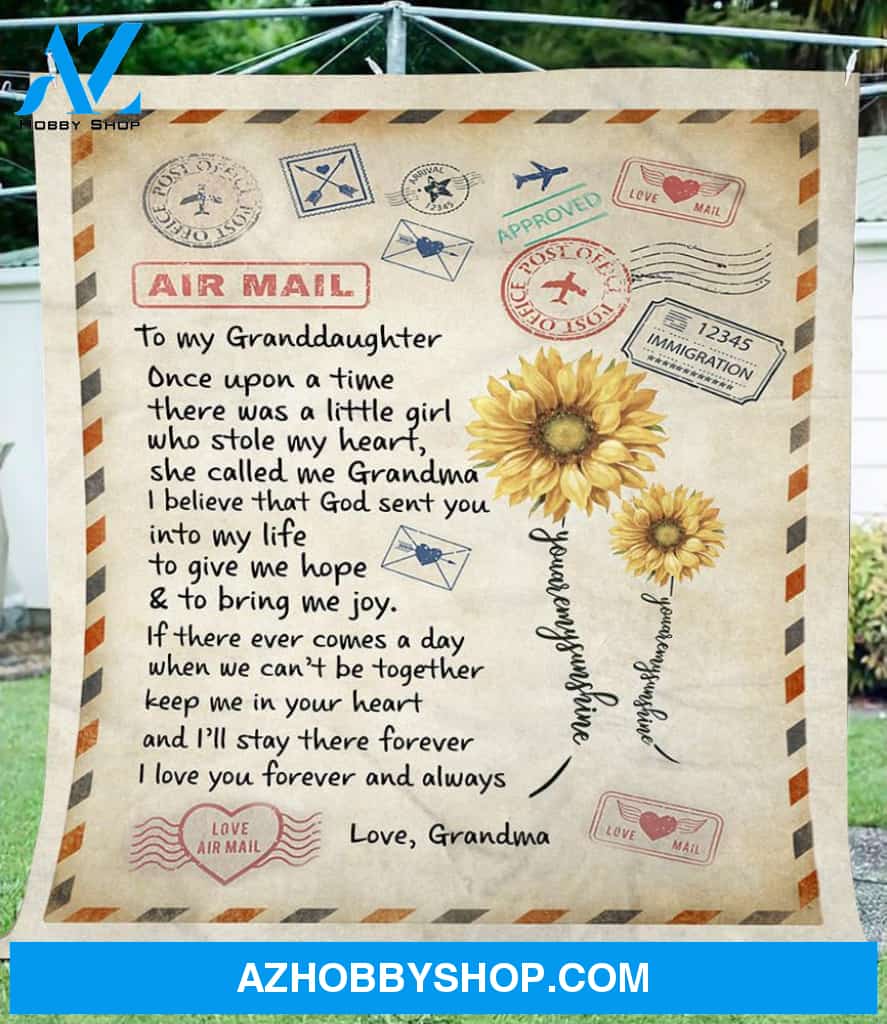 AZ
HOBBY SHOP
POST OFFICE POST OFFICE
ARRIVAL
12345
APPROVED
LOVE MAIL
POST OFFICE POST OFFICE
AIR MAIL
12345
IMMIGRATION
To my Granddaughter
Once upon a time
there was a little girl
who stole my heart,
she called me Grandma
I believe that God sent you
into my life
to give me hope
& to bring me joy.
If there ever comes a day
when we can't be together
keep me in your heart
and I'll stay there forever
I love you forever and always
youaremysunshine
youaremysunshine
LOVE
AIR MAIL
Love, Grandma
LOVE MAIL
AZHOBBYSHOP.COM